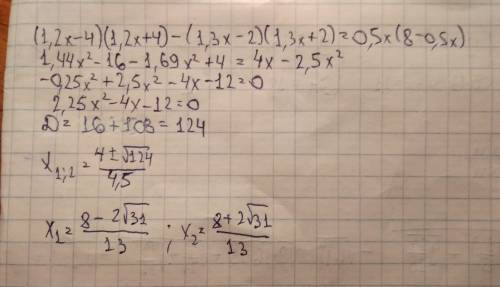 (1,2x-4)(1,2x+4)-(1,3x-2)(1,3x+2)=0,5x(8-0,5x)
1,44x²-16-1,69x²+4=4x-2,5x²
-0,25x²+2,5x²-4x-12=0
2,25x²-4x-12=0
D=16+108=124
x₁;₂=(4±√124)/4,5
x₁=(8-2√31)/13 ; x₂=(8+2√31)/13